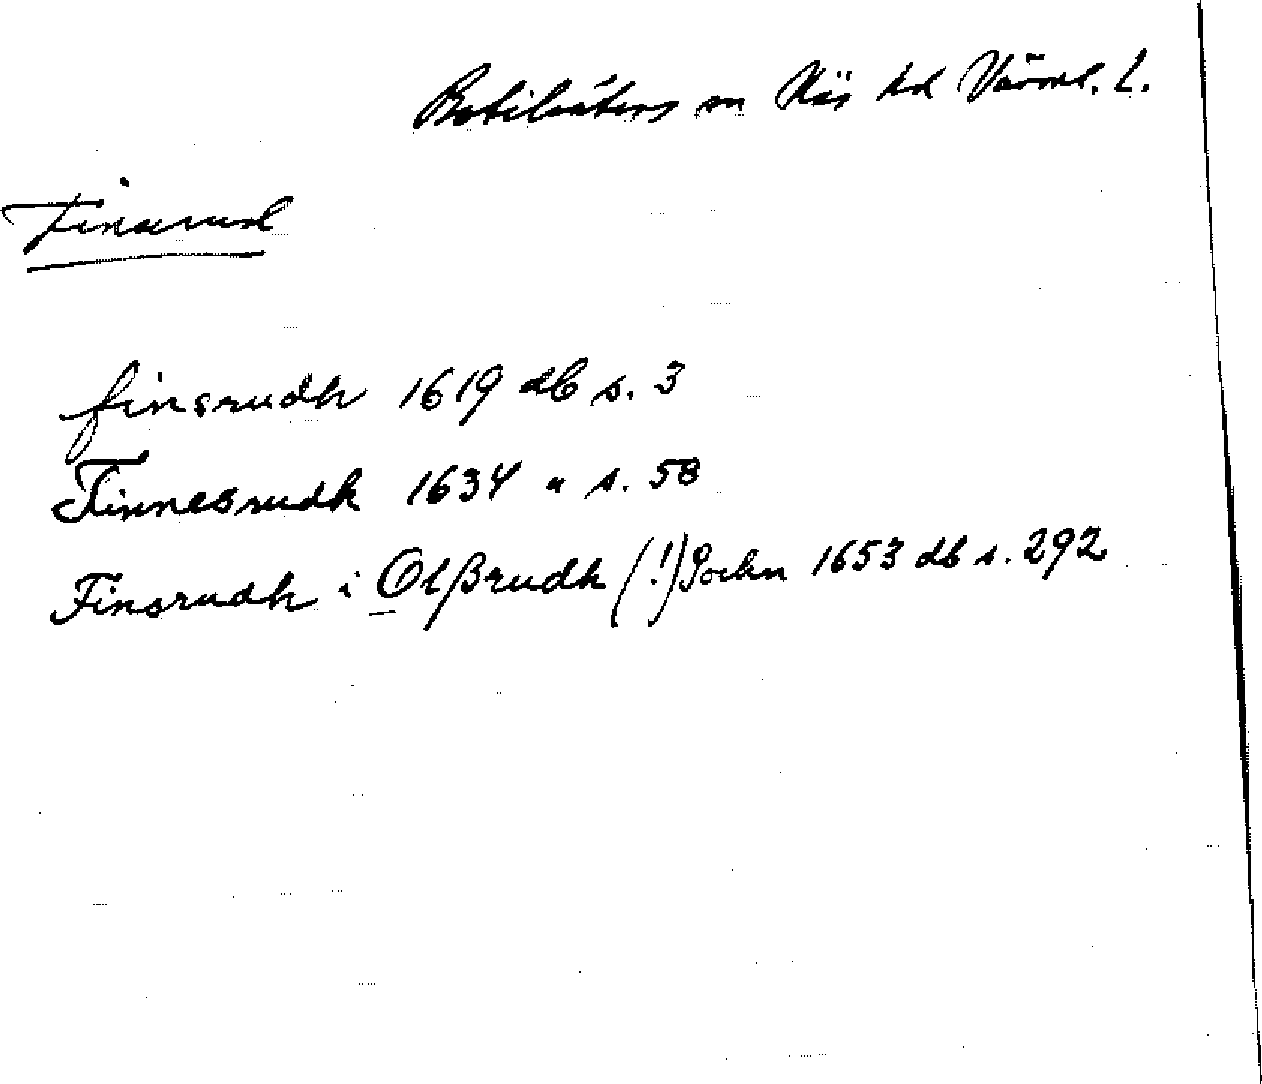 Botilsäters sn Näs hd Värml. l.
Finsrud
finsrudh 1619 db s. 3
Finnesrudh 1634 " s. 58
Finsrudh i Olßrudh (!) Sochn 1653 db s. 292